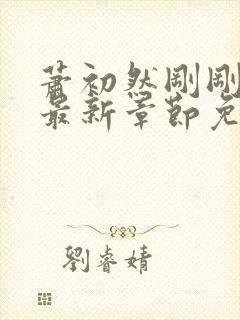 蕭初然剛剛
最新章節免
劉睿婧